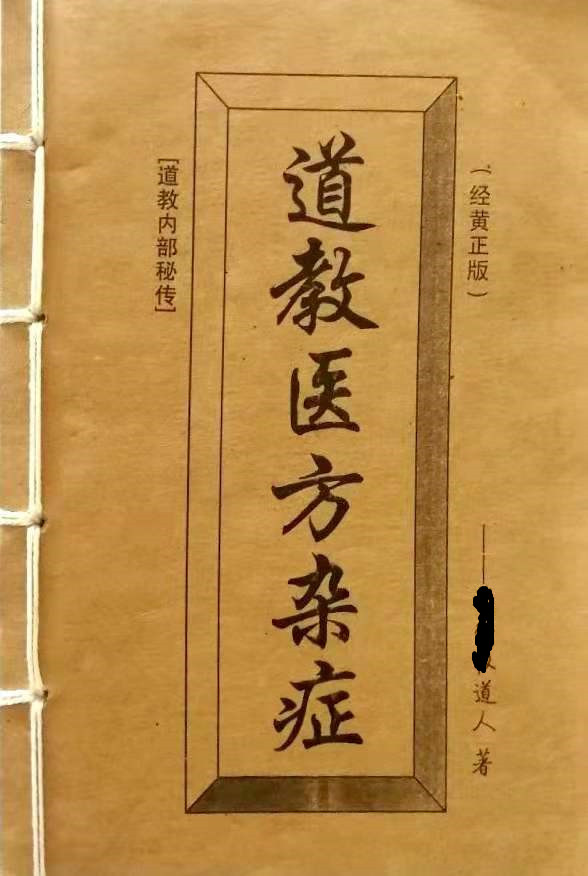 （经黄正版）
——道人著
道教医方杂症
[道教内部秘传]